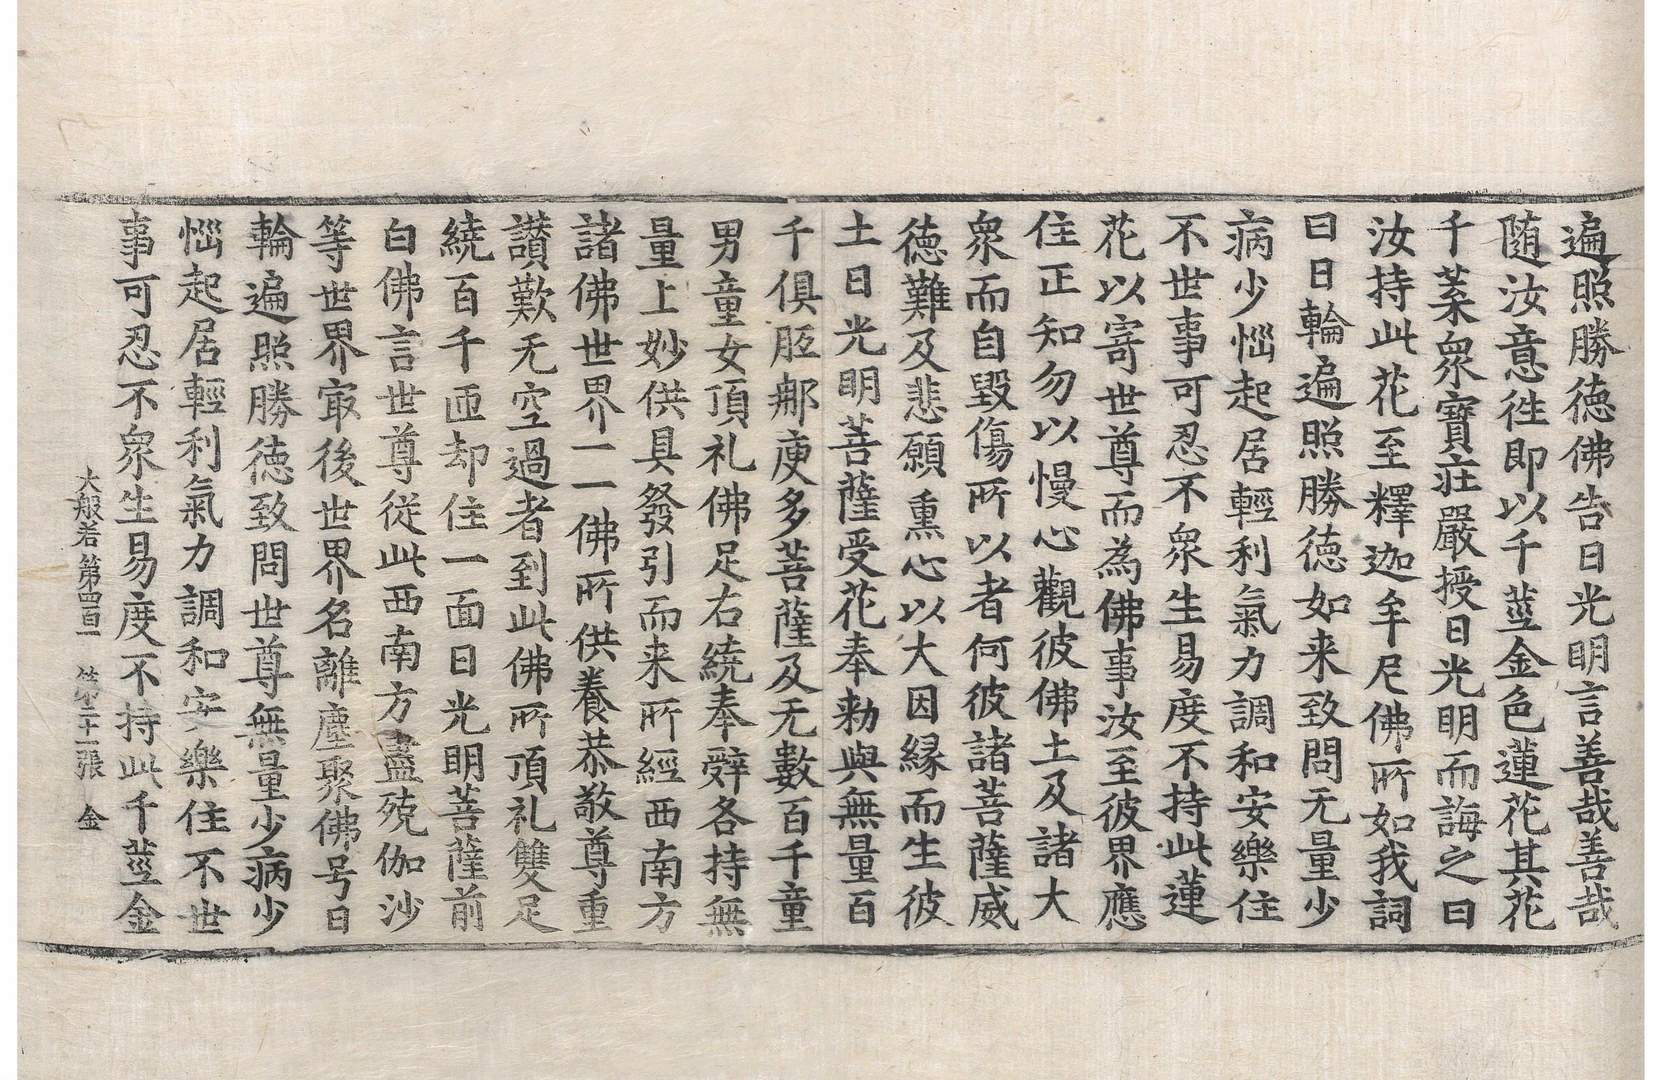 遍照勝徳佛告日光明言善哉善哉
随汝意徃即以千莖金色蓮花其花
千葉衆寶莊嚴授日光明而誨之曰
汝持此花至釋迦牟尼佛所如我詞
曰日輪遍照勝徳如来致問无量少
病少惱起居輕利氣力調和安樂住
不世事可忍不衆生易度不持此蓮
花以寄世尊而為佛事汝至彼界應
住正知勿以慢心觀彼佛土及諸大
衆而自毀傷所以者何彼諸菩薩威
徳難及悲願熏心以大因縁而生彼
土日光明菩薩受花奉勑與無量百
千俱胝那庾多菩薩及无數百千童
男童女頂礼佛足右繞奉辤各持無
量上妙供具發引而来所經西南方
諸佛世界一一佛所供養恭敬尊重
讃歎无空過者到此佛所頂礼雙足
繞百千匝却住一面日光明菩薩前
白佛言世尊従此西南方盡殑伽沙
等世界冣後世界名離塵聚佛号日
輪遍照勝徳致問世尊無量少病少
惱起居輕利氣力調和安樂住不世
事可忍不衆生易度不持此千莖金
大般若第四百一　第二十一張　金